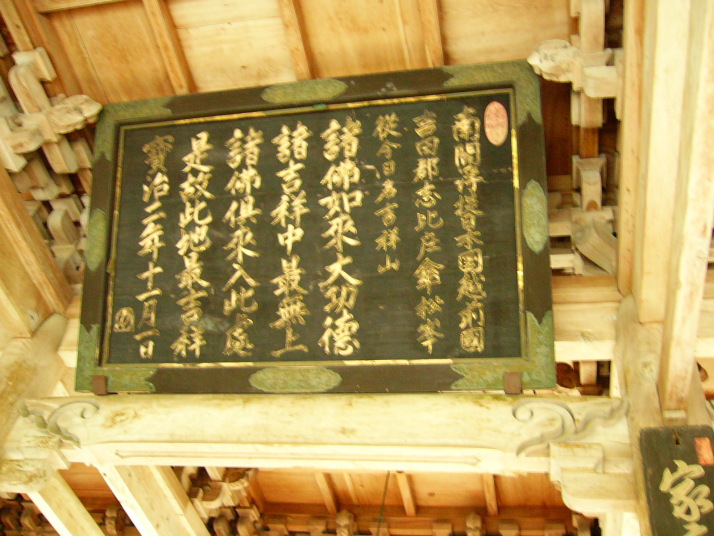 南閻浮提大日本國越前國
吉田郡志比庄傘松峯
從今日名吉祥山
諸佛如來大功德
諸吉祥中最無上
諸佛俱來入此處
是故此地最吉祥
寶治二年十一月一日
家